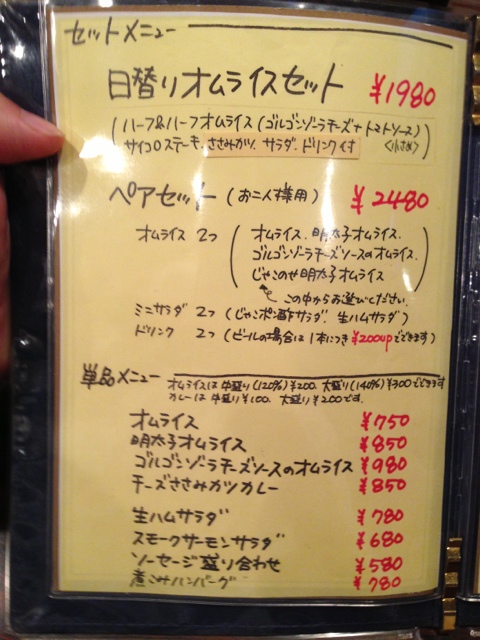 セットメニュー
日替りオムライスセット ¥1980
(ハーフ&ハーフオムライス(ゴルゴンゾーラチーズ+トマトソース)
サイコロステーキ、ささみカツ、サラダ、ドリンクイ寸 <小さめ>)
ペアセット (お二人様用) ¥2480
オムライス 2つ (オムライス、明太子オムライス、
ゴルゴンゾーラチーズソースのオムライス、
じゃこのせ明太子オムライス)
この中からお選びください
ミニサラダ 2つ (じゃこポン酢サラダ、生ハムサラダ)
ドリンク 2つ (ビールの場合は1本につき¥200upでできます)
単品メニュー オムライスは中盛り(120%)¥200、大盛り(140%)¥300でできます
カレーは中盛り¥100、大盛り¥200です。
オムライス ¥750
明太子オムライス ¥850
ゴルゴンゾーラチーズソースのオムライス ¥980
チーズささみカツカレー ¥850
生ハムサラダ ¥780
スモークサーモンサラダ ¥680
ソーセージ盛り合わせ ¥580
煮こみハンバーグ ¥780